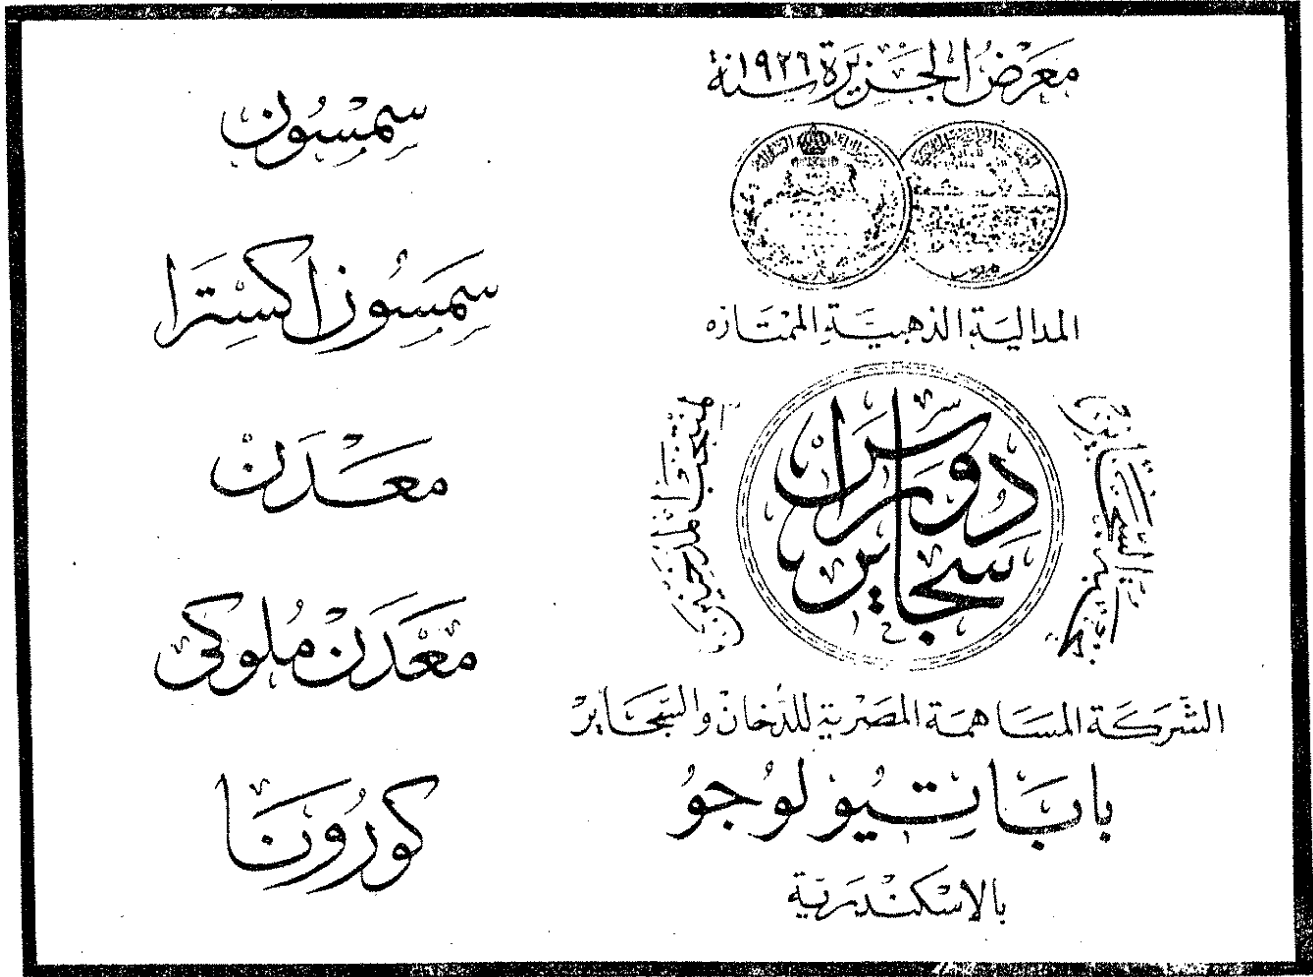 معرض الجزيرة سنة ١٩٢٦
المدالية الذهبية الممتازه
سجاير
دوراس
الشركة المساهمة المصرية للدخان والسجاير
باباتيولوجو
بالاسكندرية
سمسون
سمسون اكسترا
معدن
معدن ملوكى
كورونا